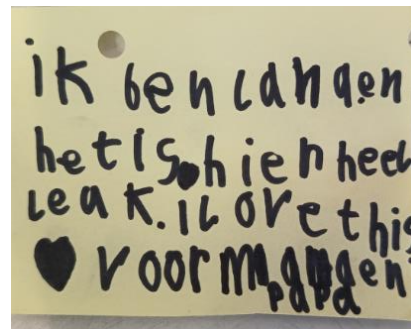 ik ben landen
het is hier heel
leuk. i love this
♥ voor
papa